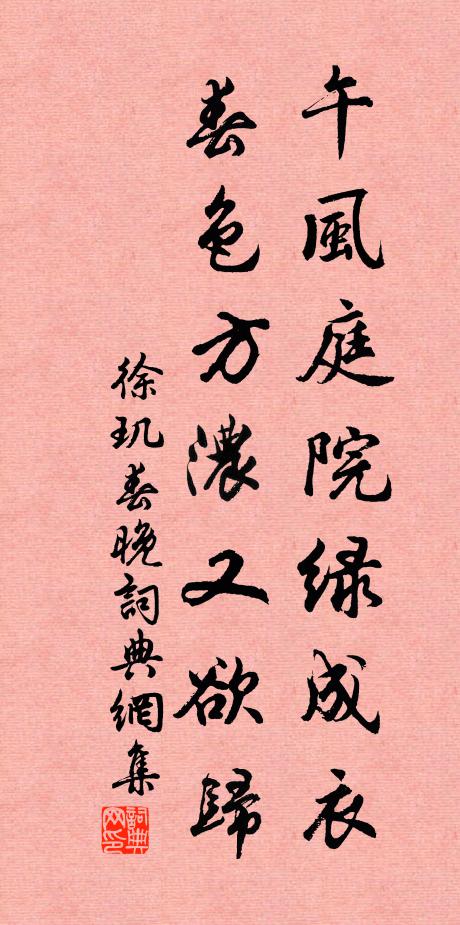 午風庭院綠成衣
春色方濃又欲歸
徐璣春晚詞典網集
詞典网印